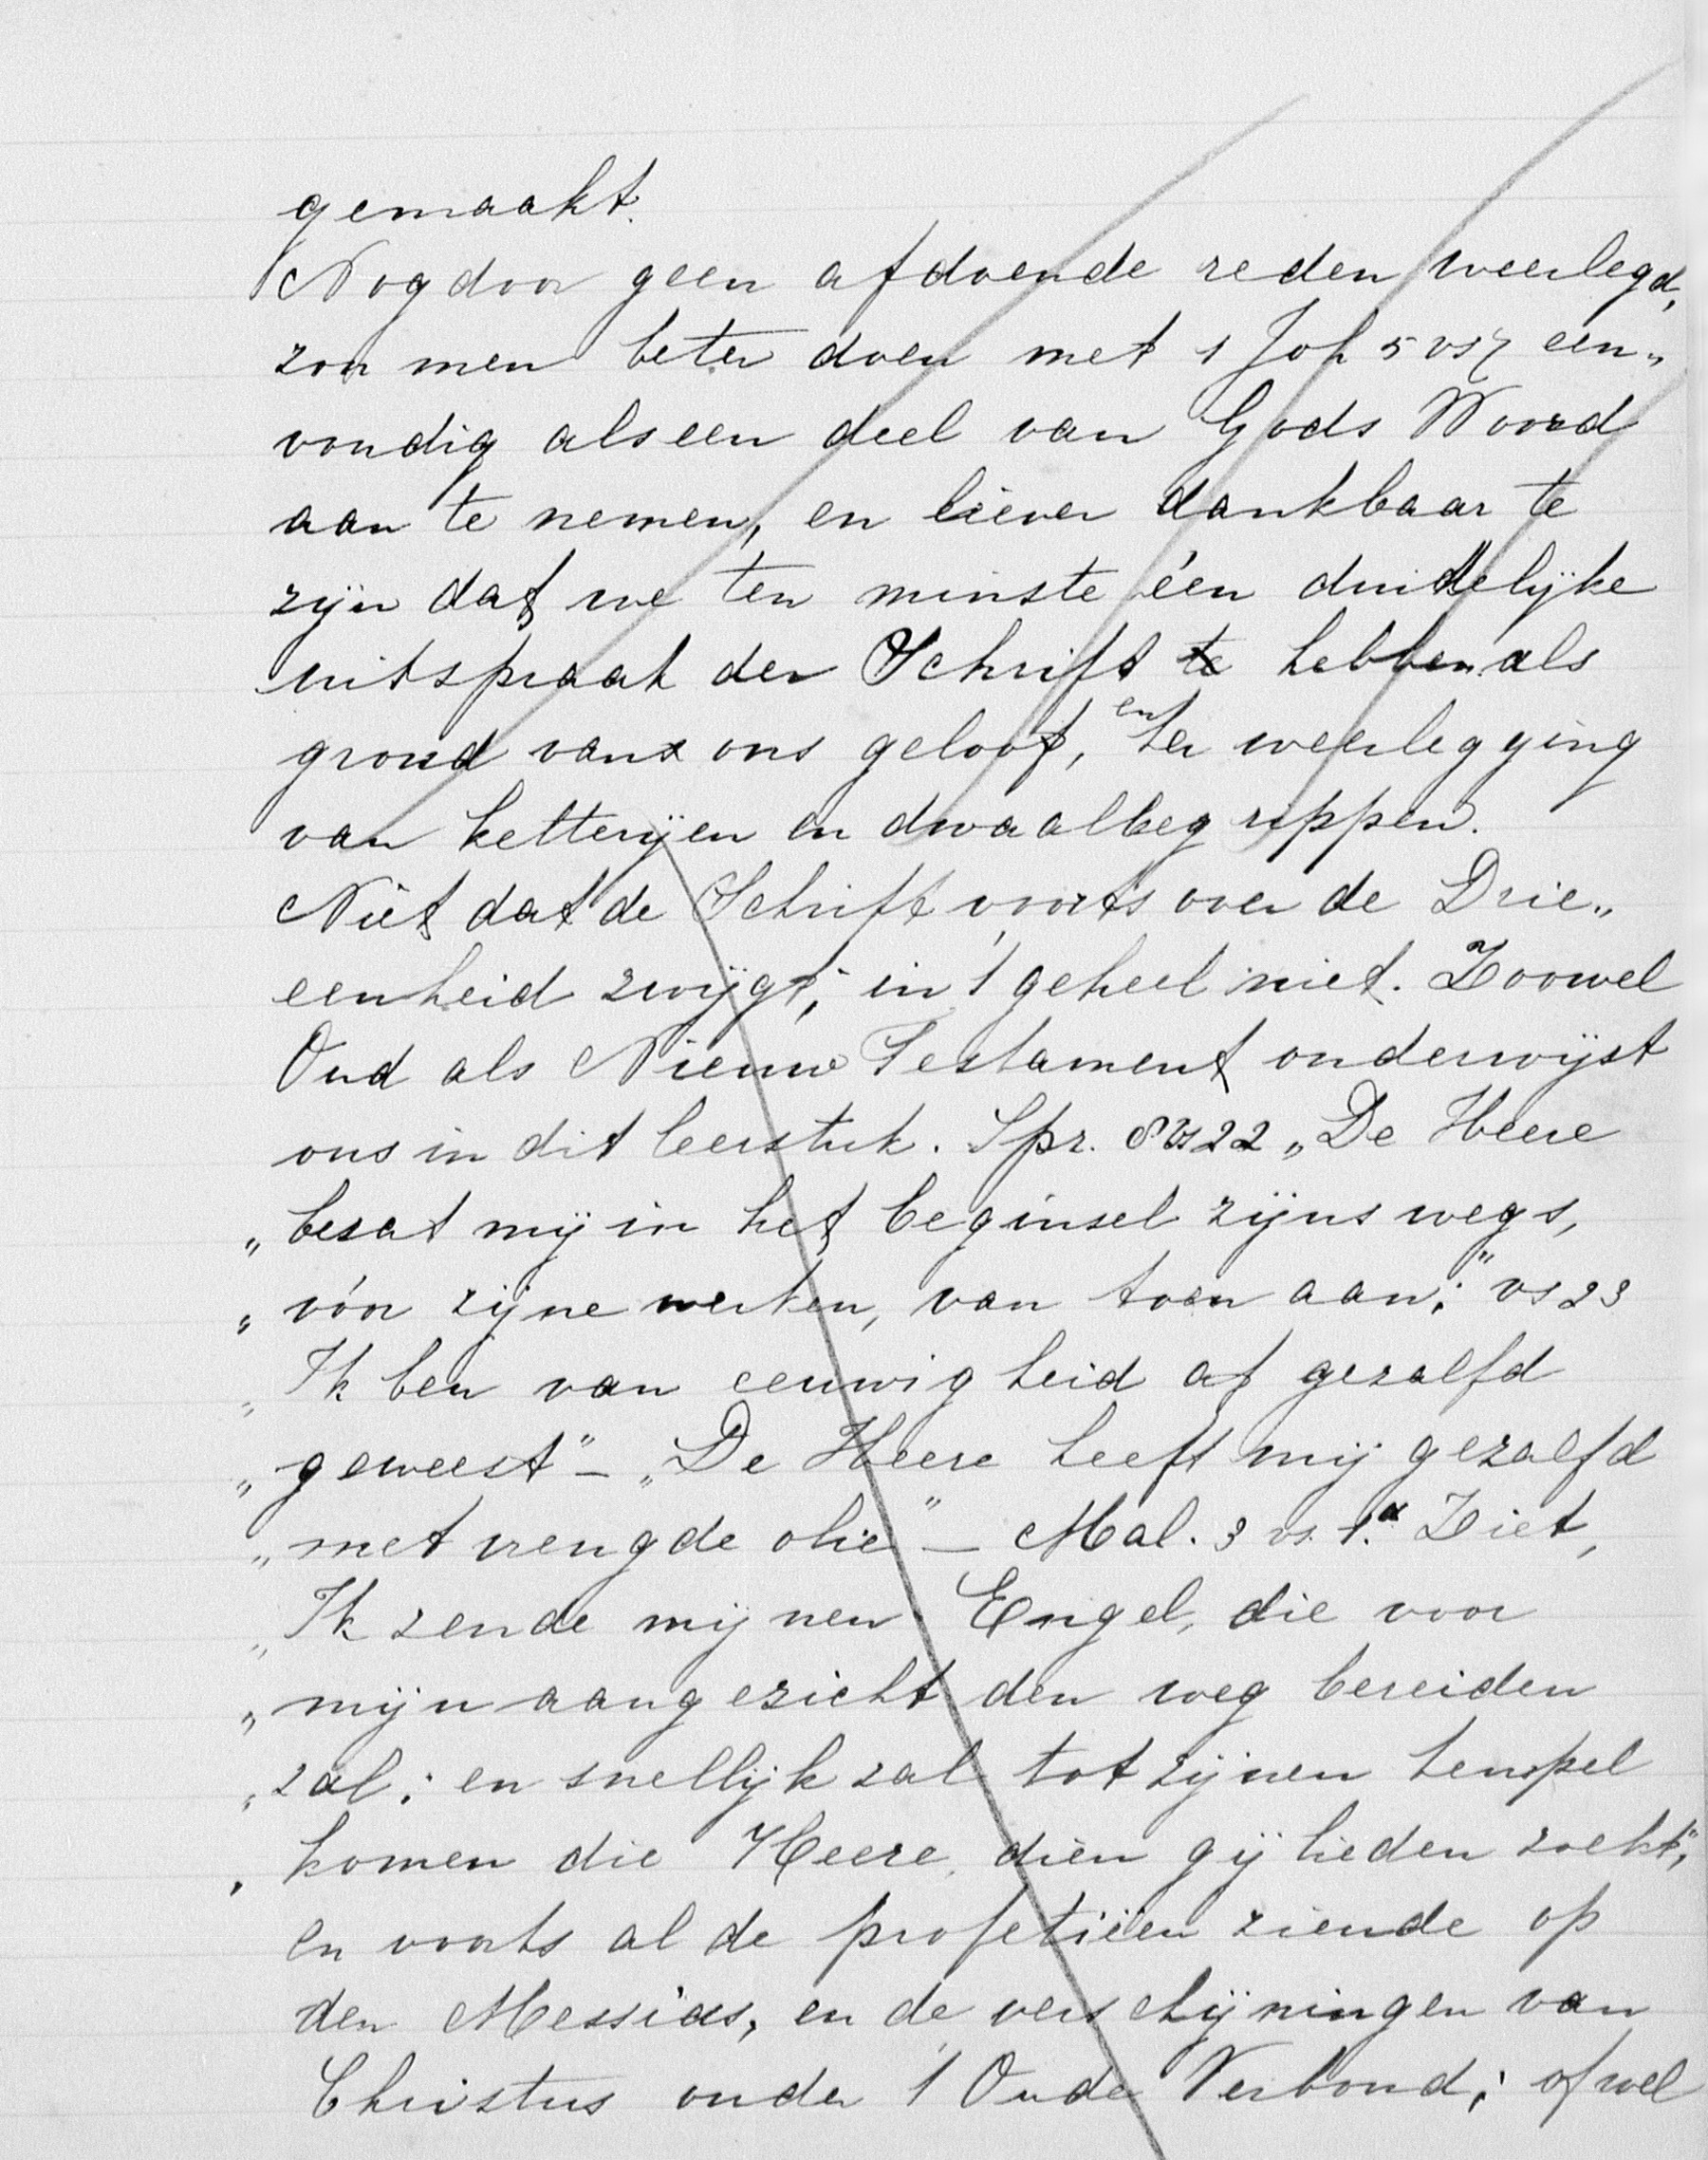 gemaakt.
Nog door geen afdoende reden weerlegd,
zou men beter doen met 1 Joh 5 vs 7 een„
voudig als een deel van Gods Woord
aan te nemen, en liever dankbaar te
zijn dat we ten minste één duidelijke
uitspraak der Schrift te hebben als
grond van ons geloof, en ter weerlegging
van ketterijen en dwaalbegrippen.
Niet dat de Schrift voorts over de Drie„
eenheid zwijgt; in 't geheel niet. Zoowel
Oud als Nieuw Testament onderwijst
ons in dit leerstuk. Spr. 8 vs 22 „De Heere
„ bezat mij in het beginsel zijns wegs,
„ vóór zijne werken, van toen aan;" vs 23
„ Ik ben van eeuwigheid af gezalfd
„ geweest" – „De Heere heeft mij gezalfd
„ met vreugde olie" – Mal. 3 vs. 1.a Ziet,
„ Ik zende mijnen Engel, die voor
„ mijn aangezicht den weg bereiden
„ zal; en snellijk zal tot zijnen tempel
„ komen die Heere, dien gijlieden zoekt",
en voorts al de profetiëen ziende op
den Messias, en de verschijningen van
Christus onder 't Oude Verbond; ofwel